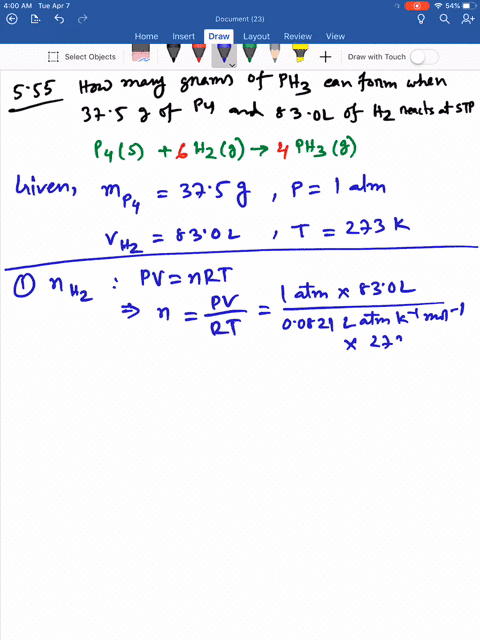 4:00 AM Tue Apr 7
54%
Document (23)
Home Insert Draw Layout Review View
Select Objects
Draw with Touch
5.55 How many grams of PH3 can form when
37.5 g of P4 and 83.0L of H2 reacts at STP
P4(s) + 6H2(g) → 4 PH3(g)
Given, mP4 = 37.5 g , P = 1 atm
VH2 = 83.0L , T = 273 K
① nH2 : PV = nRT
⇒ n = PV/RT = 1 atm × 83.0L / 0.0821 L atm K⁻¹ mol⁻¹
× 27